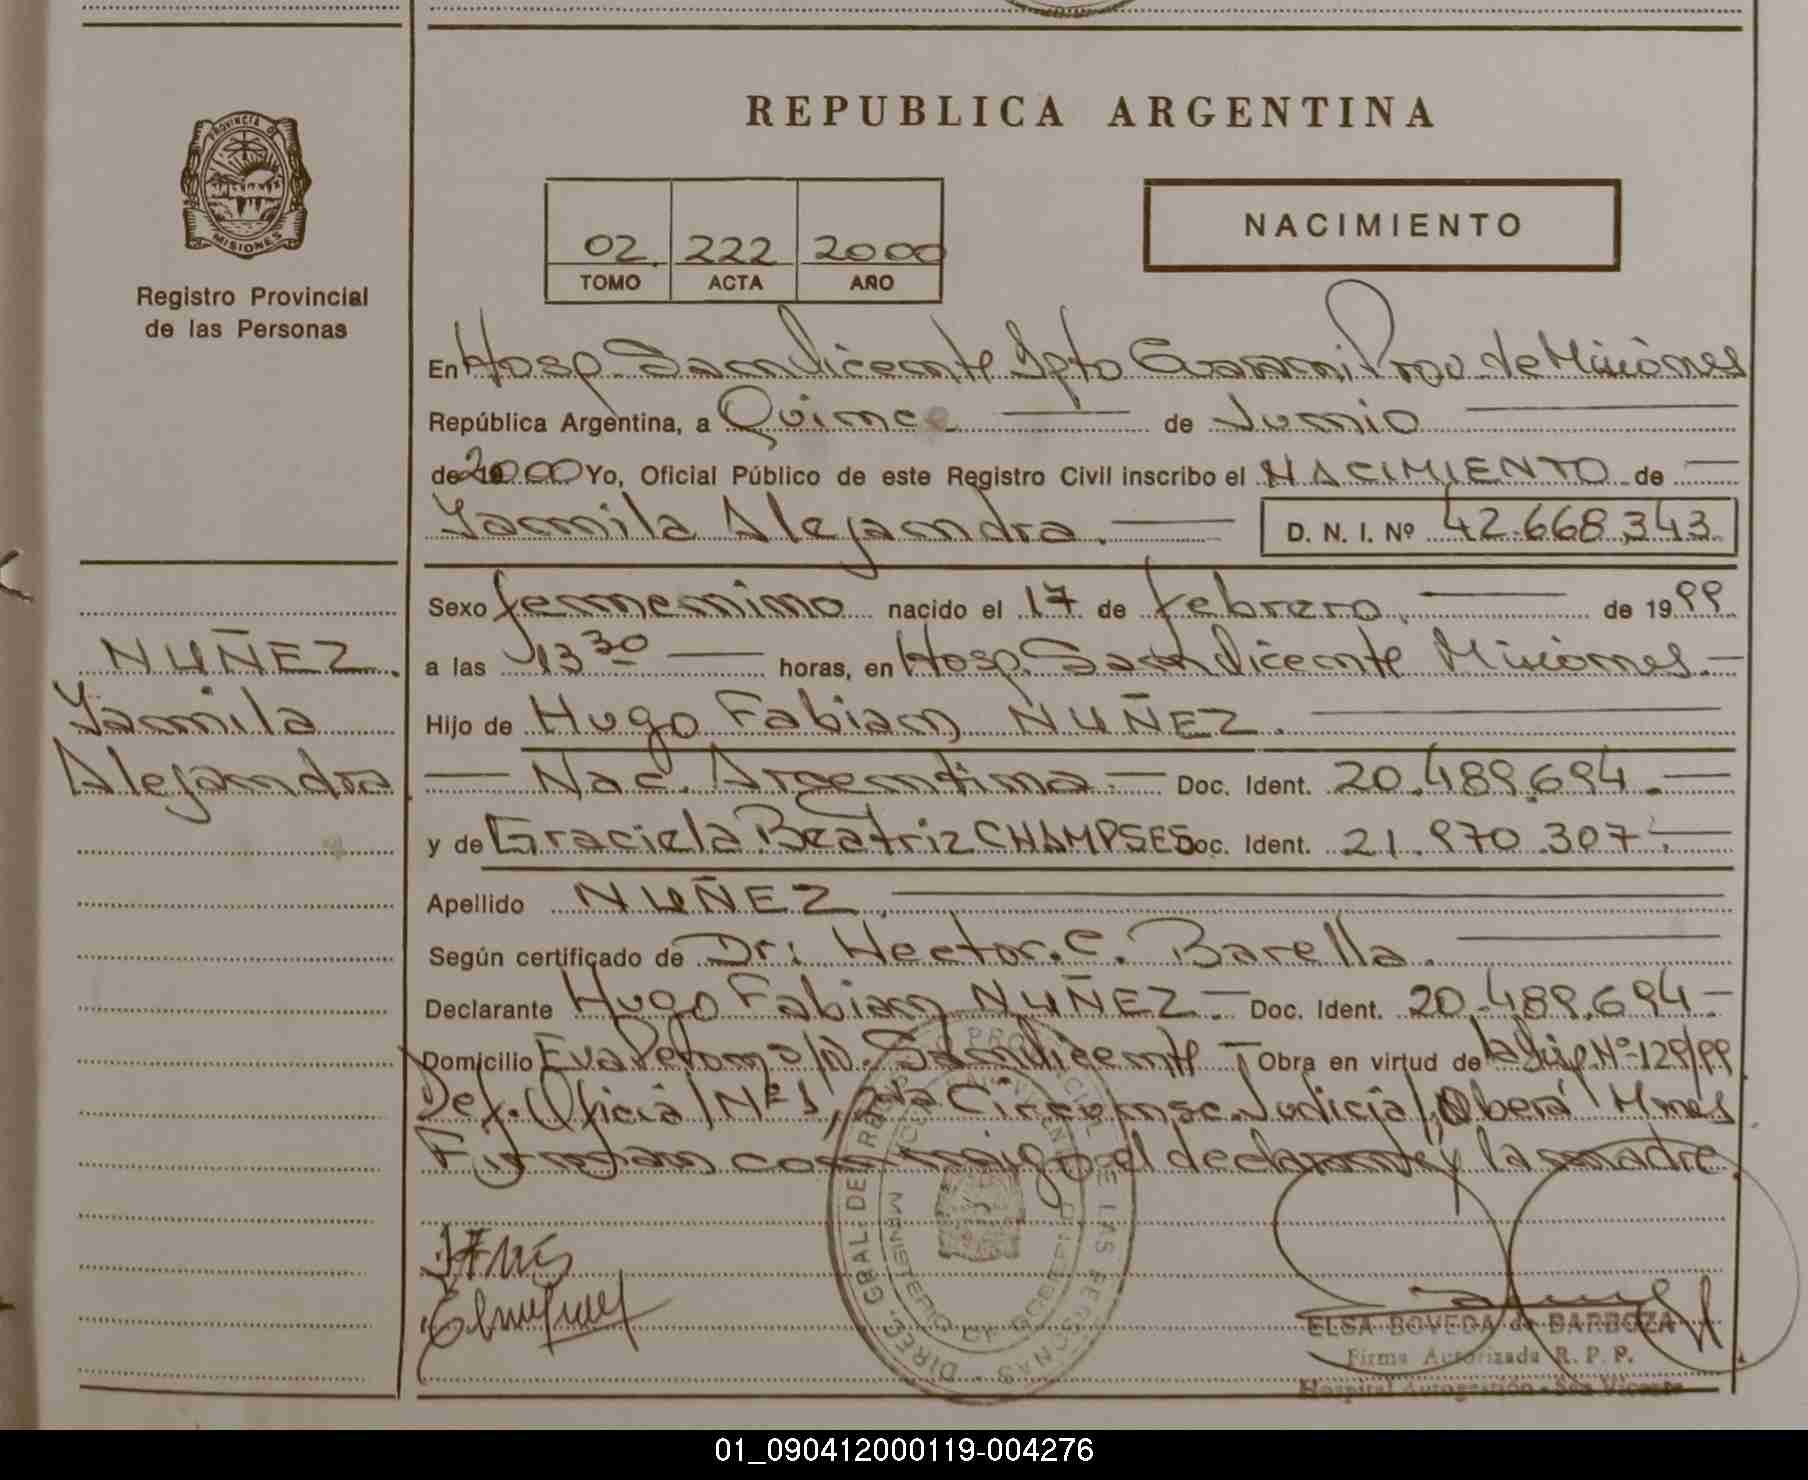 REPUBLICA ARGENTINA
PROVINCIA DE
MISIONES
Registro Provincial
de las Personas
02. 222 2000
TOMO ACTA AÑO
NACIMIENTO
En Hosp. San Vicente Dpto Guarani Prov de Misiones
República Argentina, a Quince de Junio
de 2000 Yo, Oficial Público de este Registro Civil inscribo el NACIMIENTO de
Yamila Alejandra. D. N. I. Nº 42.668.343
Sexo femenino nacido el 17 de febrero. de 1999
a las 13 30 horas, en Hosp. San Vicente Misiones.
NUÑEZ.
Yamila
Alejandra.
Hijo de Hugo Fabian NUÑEZ.
Nac. Argentina Doc. Ident. 20.489.694.
y de Graciela Beatriz CHAMPSES Doc. Ident. 21.970.307.
Apellido NUÑEZ.
Según certificado de Dr: Hector. C. Barella.
Declarante Hugo Fabian NUÑEZ. Doc. Ident. 20.489.694
Domicilio Eva Peron s/n. San Vicente Obra en virtud de Nº 129/99
Def. Oficial Nº 1, 2da Circunsc. Judicial, Oberá Mnes
Firman conmigo el declarante y la madre.
DIREC. GRAL. DE REG. PROVINCIAL DE LAS PERSONAS
MINISTERIO DE GOBIERNO
ELSA BOVEDA de BARBOZA
Firma Autorizada R. P. P.
Hospital Autogestión - San Vicente
01_090412000119-004276